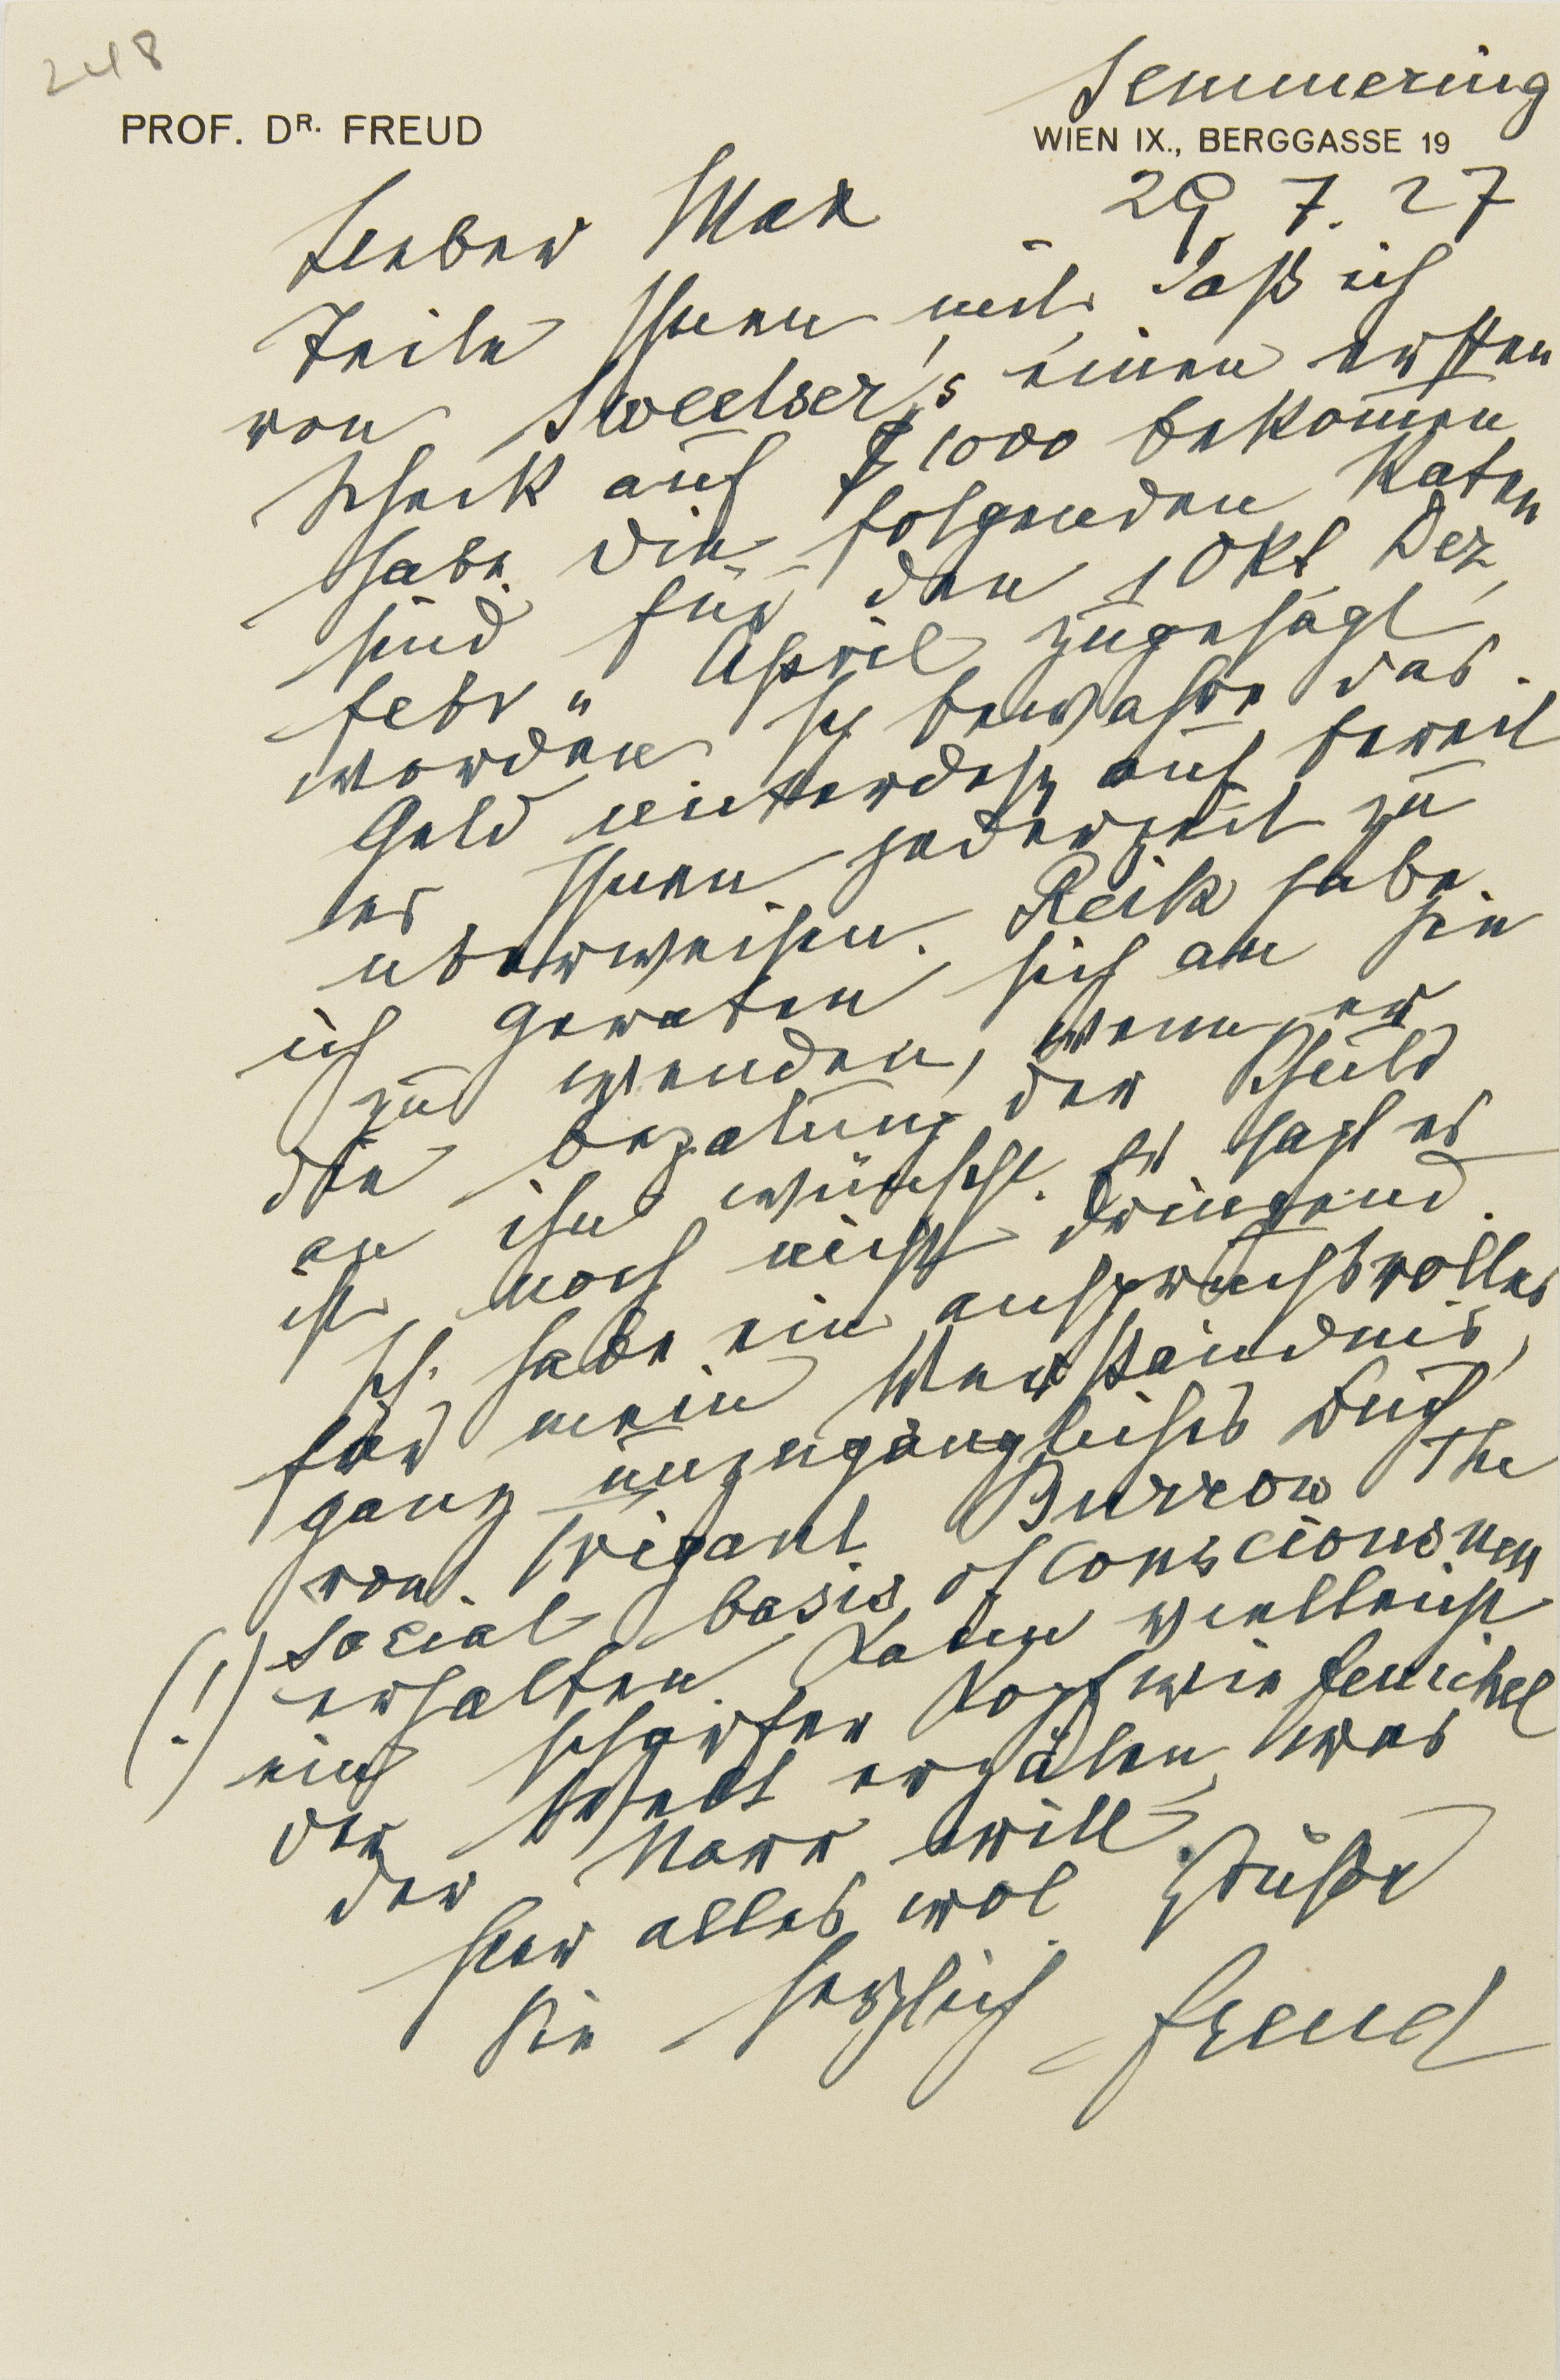 248
Semmering
PROF. DR. FREUD
WIEN IX., BERGGASSE 19
29. 7. 27
Lieber Max
Teile Ihnen mit, daß ich
von Sweetser's einen ersten
Scheck auf $ 1000 bekommen
habe. Die folgenden Raten
sind für den 1 Okt, Dez,
Febr u April zugesagt
worden. Ich bewahre das
Geld unterdeß auf bereit
es Ihnen jederzeit zu
überweisen. Reik habe
ich geraten sich an Sie
zu wenden, wenn er
die Bezalung der Schuld
an ihn wünscht. Er sagt es
ist noch nicht dringend.
Ich habe ein anspruchsvolles
für mein Verständnis,
ganz unzugängliches Buch
von Trigant Burrow The
social basis of Consciousness
(!) erhalten. Kann vielleicht
ein scharfer Kopf wie Fenichel
der Welt erzälen, was
der Narr will?
Hier alles wol. Grüße
Sie herzlich Freud